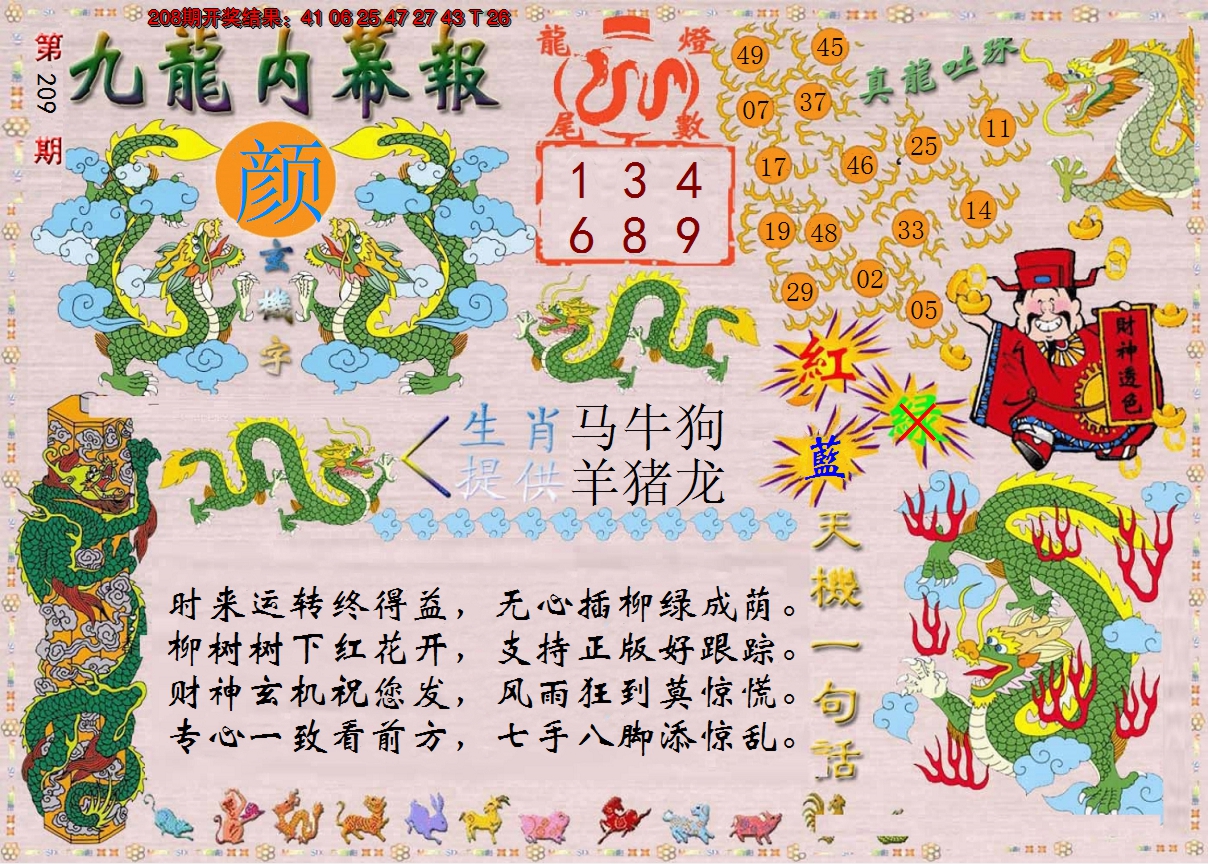 208期开奖结果：41 06 25 47 27 43 T 26
第209期
九龍内幕報
颜
玄機字
龍燈尾數
1 3 4
6 8 9
真龍吐珠
49
45
07
37
17
46
25
11
19
48
33
14
29
02
05
財神透色
紅
绿
藍
生肖提供
马牛狗
羊猪龙
天機一句話
时来运转终得益，无心插柳绿成荫。
柳树树下红花开，支持正版好跟踪。
财神玄机祝您发，风雨狂到莫惊慌。
专心一致看前方，七手八脚添惊乱。